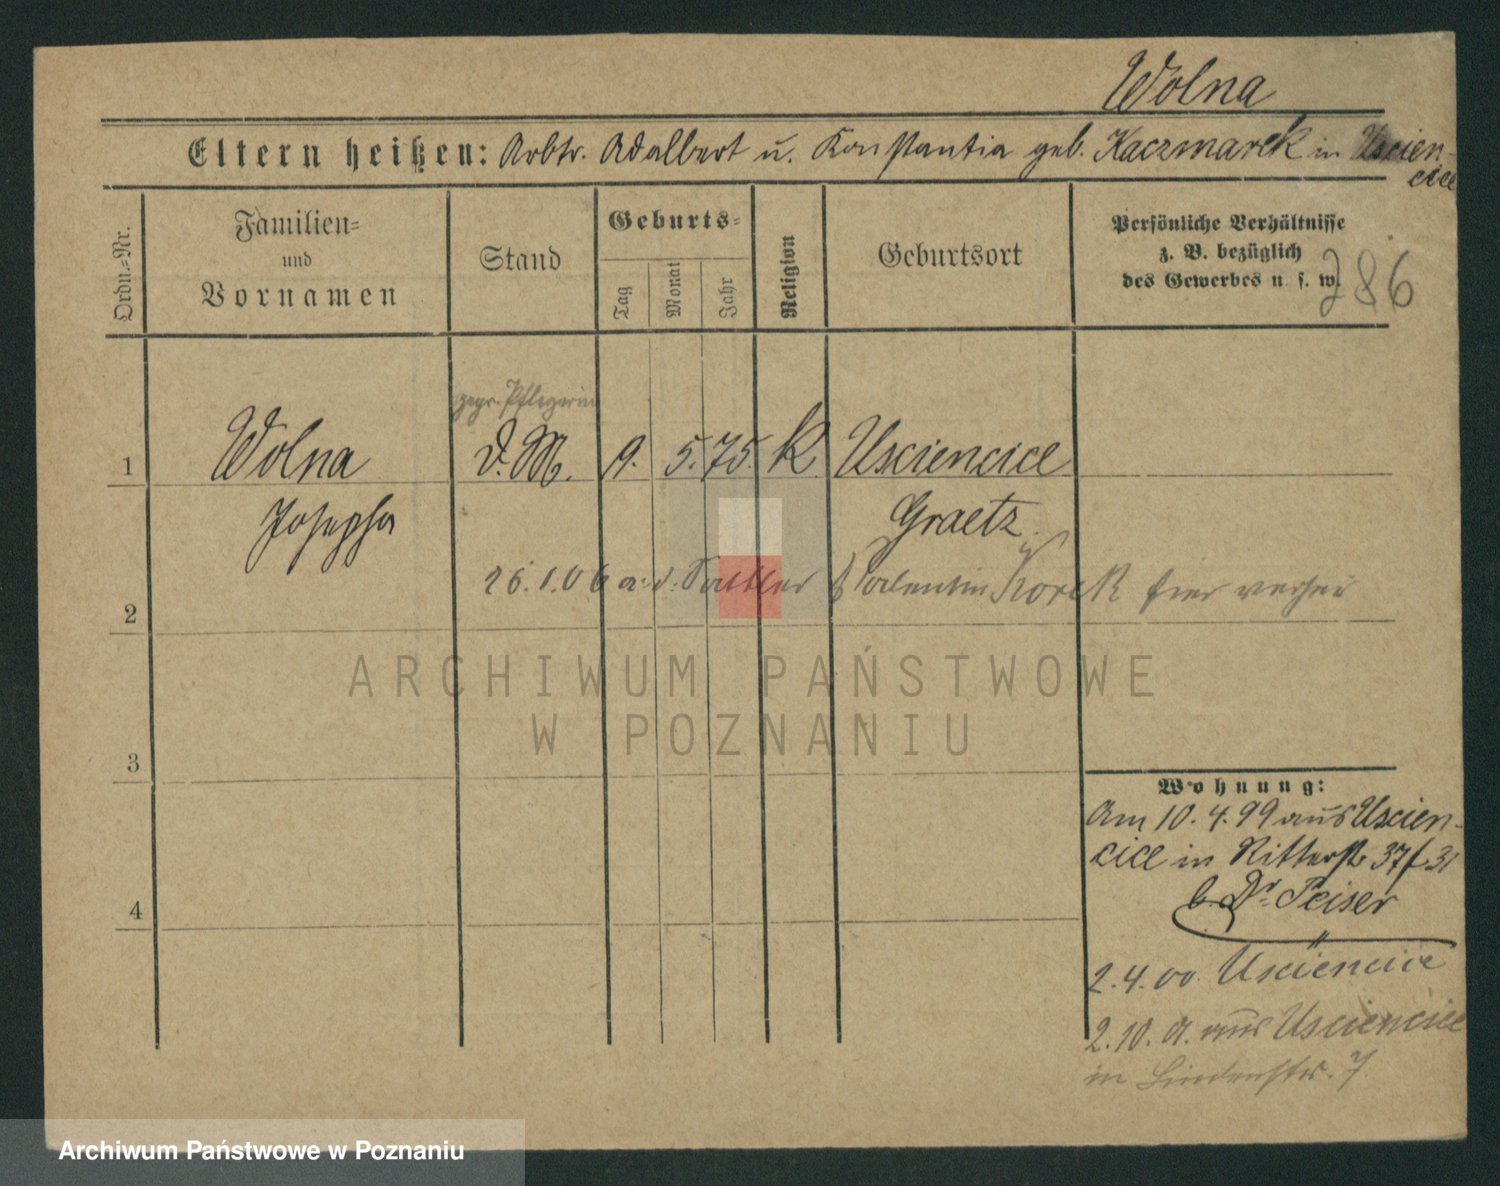 Wolna
Eltern heißen: Arbtr. Adalbert u. Konstantia geb. Kaczmarek in Uscien-
cice
Ordn.-Nr.
Familien-
und
Vornamen
Stand
Geburts-
Tag
Monat
Jahr
Religion
Geburtsort
Persönliche Verhältnisse
z. B. bezüglich
des Gewerbes u. s. w.
786
gepr. Pflegerin
1 Wolna D.M. 9. 5. 75. K Usciencice
Josepha Graetz
2
26.1.06 a. d. Sattler Valentin Korek hier verhei
3
4
Wohnung:
Am 10.4.99 aus Uscien-
cice in Ritterstr 37/31
b. Dr. Peiser
2.4.00. Usciencice
2.10. 0. aus Usciencice
in Lindenstr. 7
ARCHIWUM PAŃSTWOWE
W POZNANIU
Archiwum Państwowe w Poznaniu